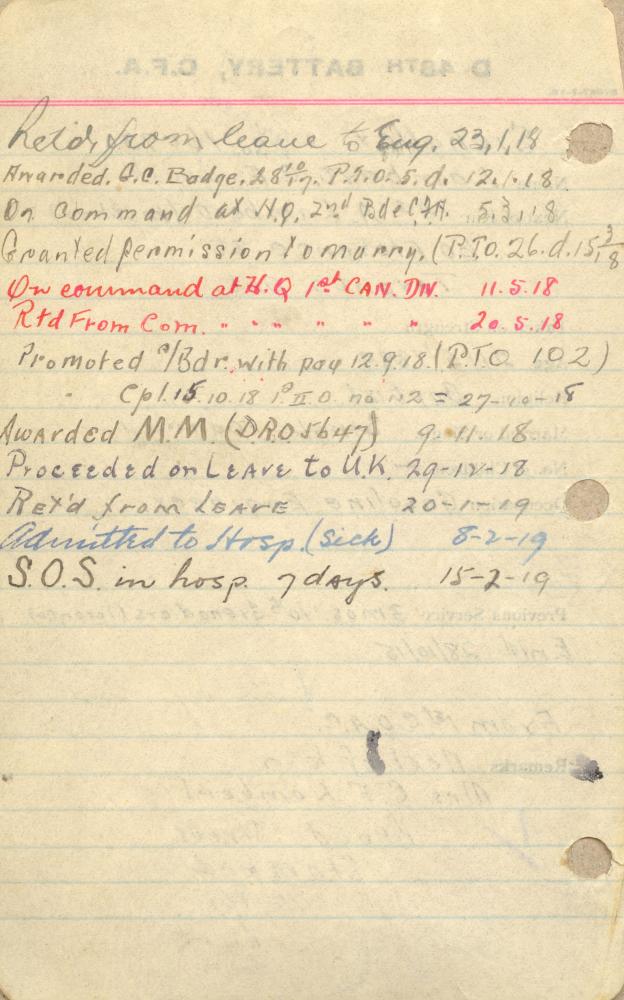 Ret'd, from leave to Eng. 23,1,18
Awarded. G.C. Badge. 28/10/17. P.T.O. 5. d. 12.1.18.
On Command at H.Q. 2nd Bde CFA. 5.3.18
Granted permission to marry. (P.T.O. 26. d. 15/3/18
On command at H.Q 1st CAN. DN. 11.5.18
Rtd From Com. " " " " " 20.5.18
Promoted a/Bdr. with pay 12.9.18. (P.T.O 102)
" Cpl. 15.10.18 P II O no 112 = 27-10-18
Awarded M.M. (DRO 5647) 9-11-18
Proceeded on Leave to U.K. 29-12-18
Ret'd from Leave 20-1-19
Admitted to Hosp. (Sick) 8-2-19
S.O.S. in hosp. 7 days. 15-2-19